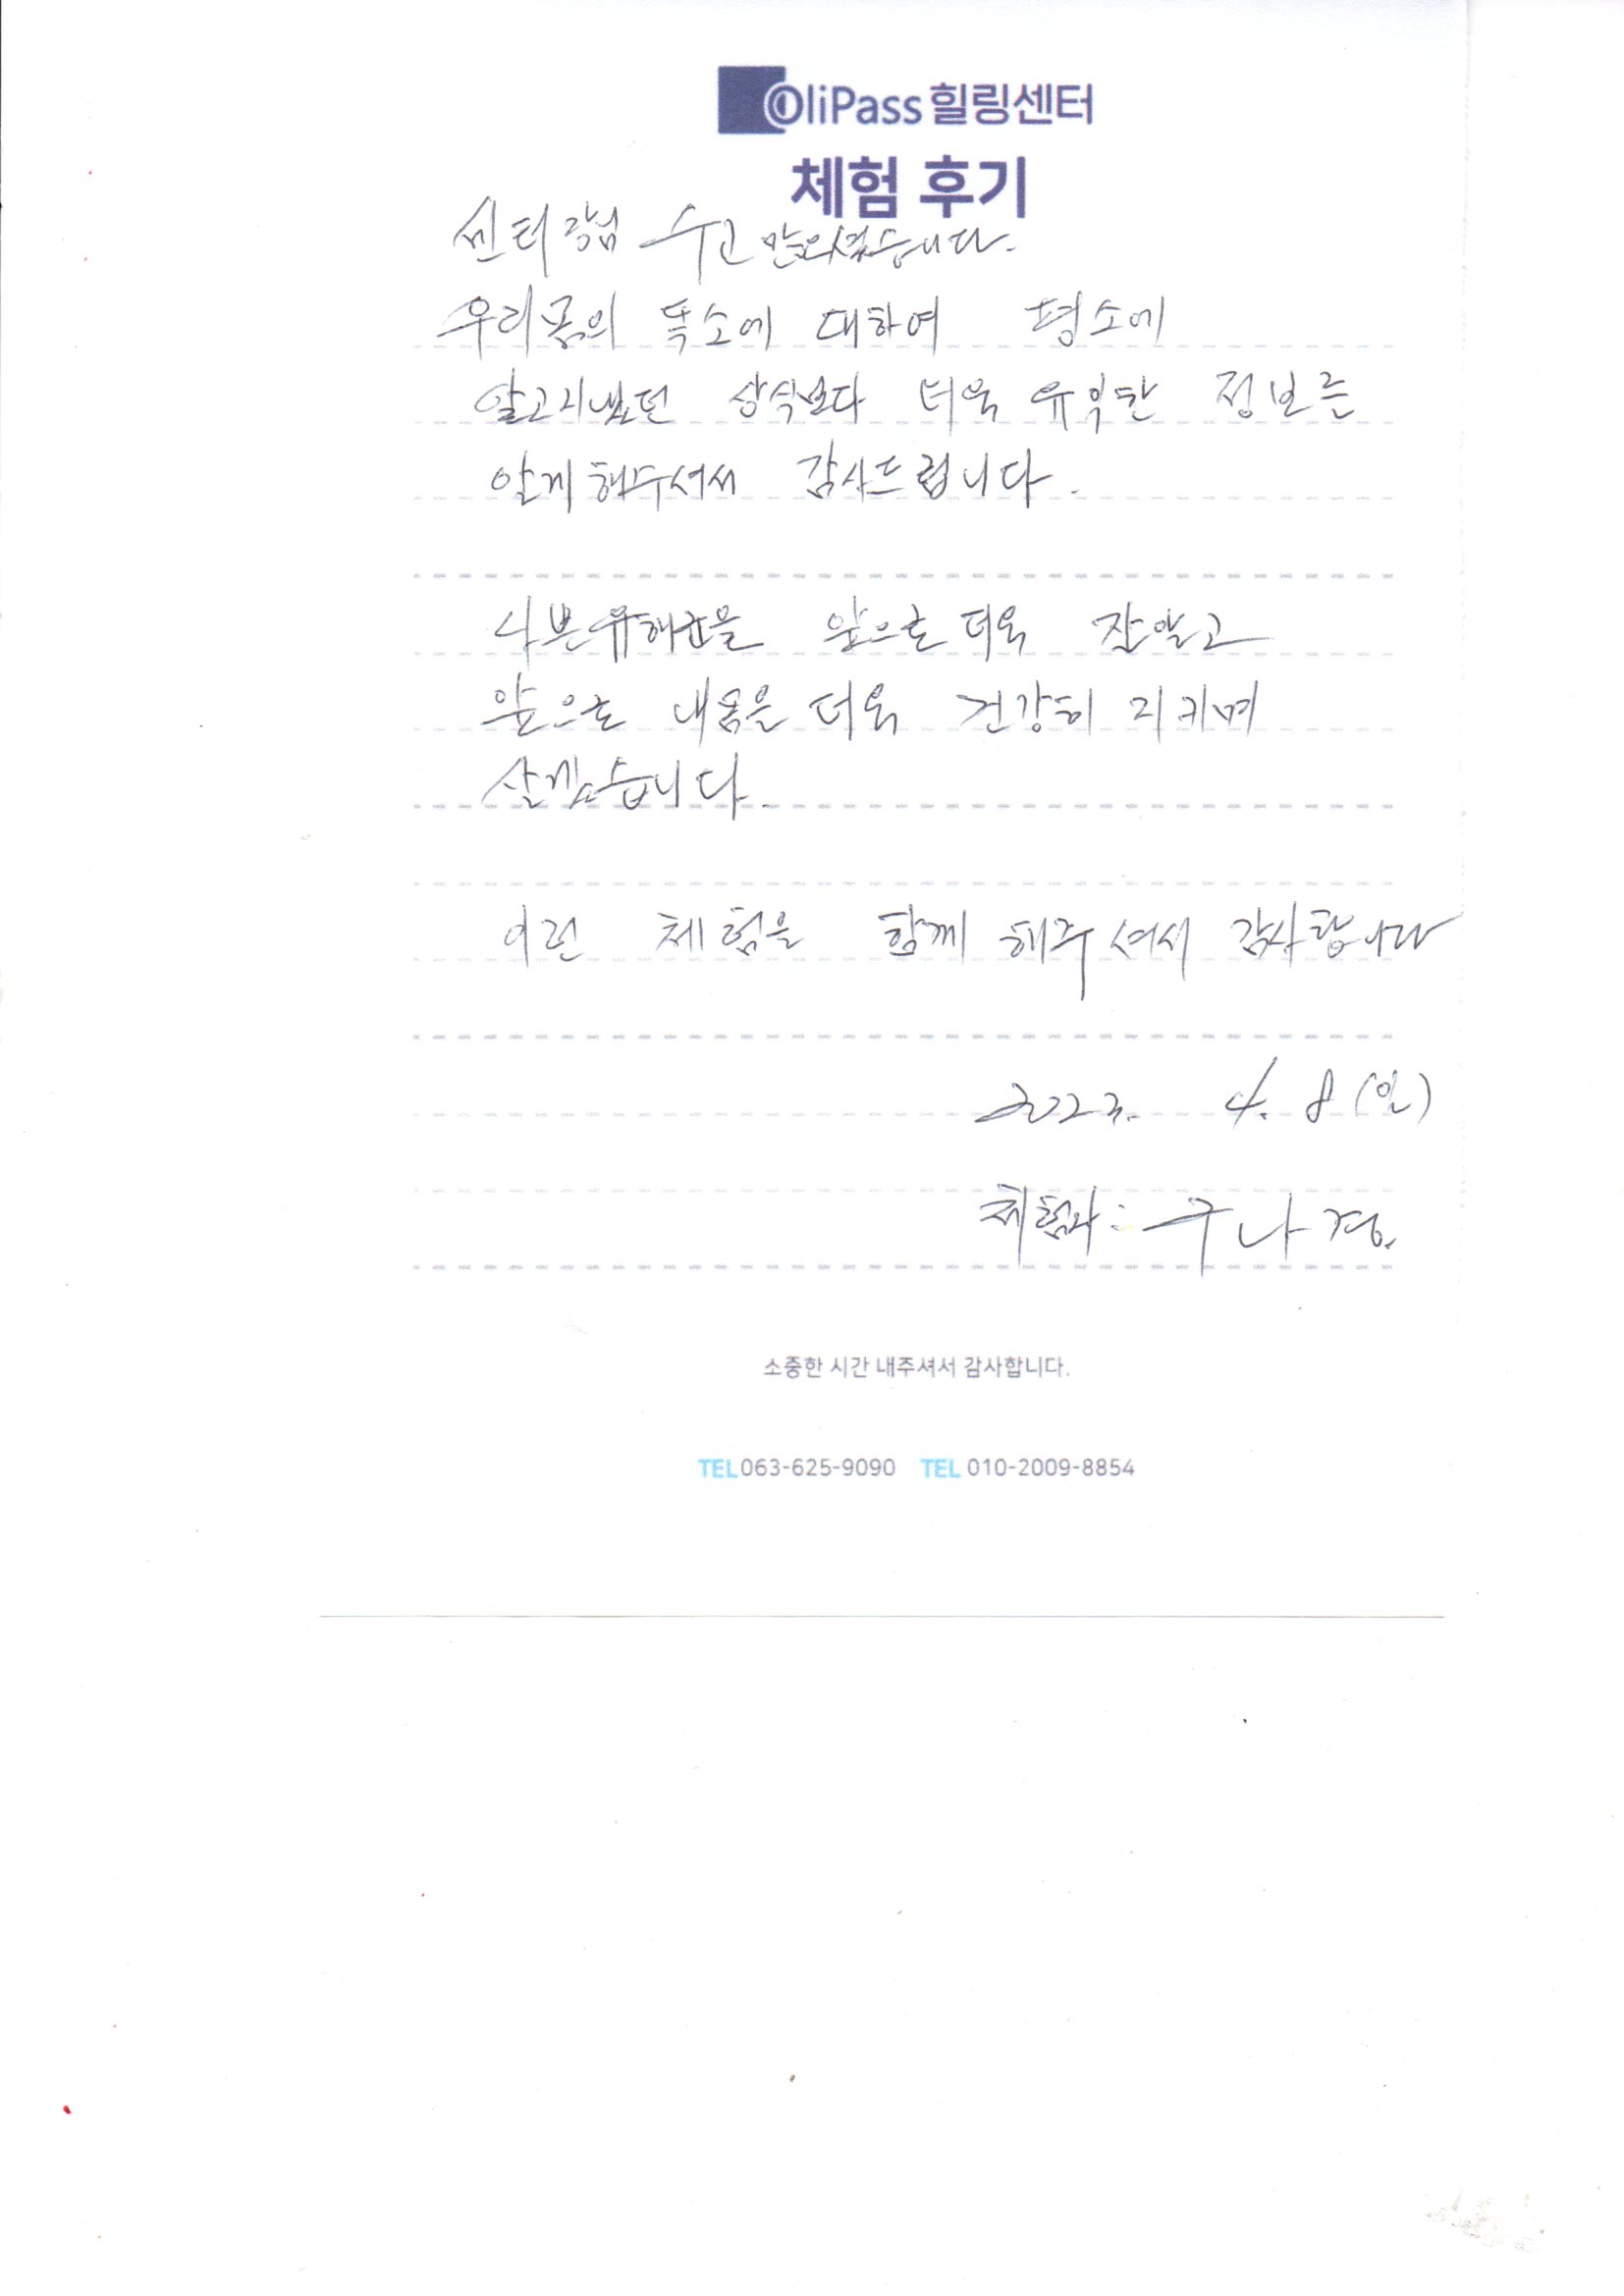 OliPass 힐링센터
체험 후기
센터장님 수고 많으셨습니다.
우리몸의 독소에 대하여 평소에
알고지냈던 상식보다 더욱 유익한 정보를
알게해주셔서 감사드립니다.
나쁜유해균을 앞으로 더욱 잘알고
앞으로 내몸을 더욱 건강히 지키며
살겠습니다.
이런 체험을 함께 해주셔서 감사합니다
2023. 4. 8 (일)
체험자: 구나경.
소중한 시간 내주셔서 감사합니다.
TEL 063-625-9090 TEL 010-2009-8854